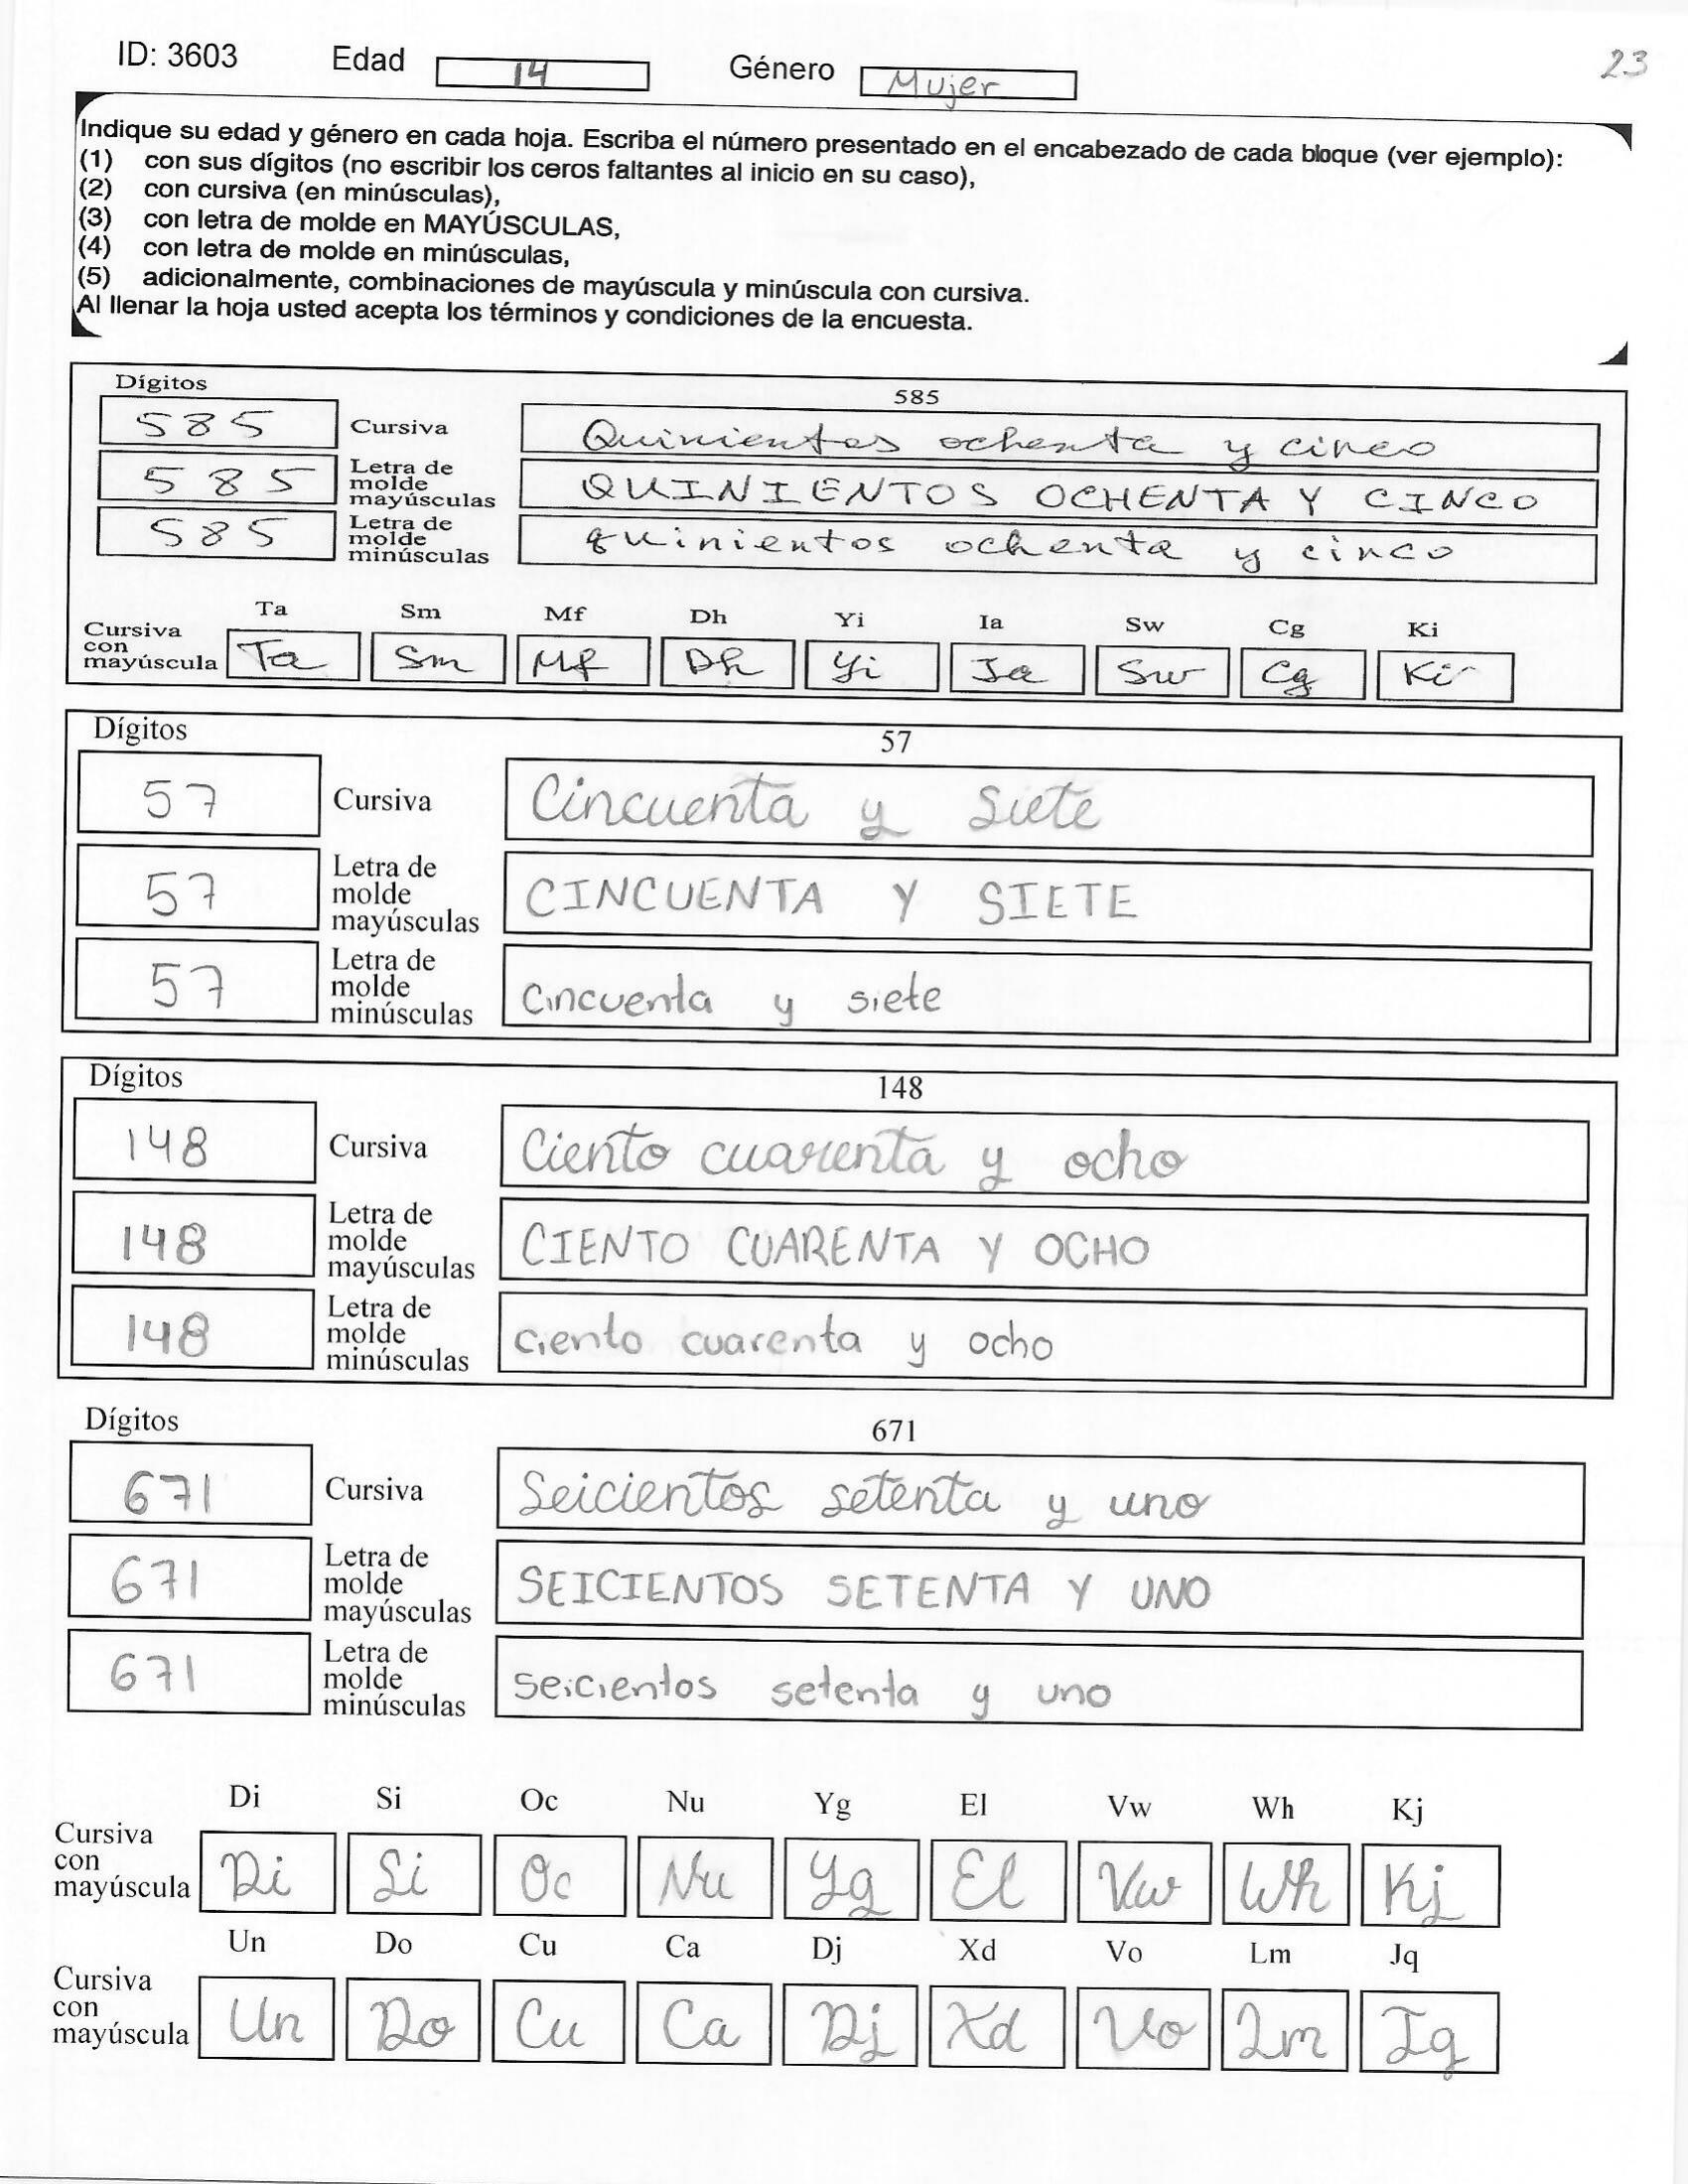 ID: 3603 Edad 14 Género Mujer 23
Indique su edad y género en cada hoja. Escriba el número presentado en el encabezado de cada bloque (ver ejemplo):
(1) con sus dígitos (no escribir los ceros faltantes al inicio en su caso),
(2) con cursiva (en minúsculas),
(3) con letra de molde en MAYÚSCULAS,
(4) con letra de molde en minúsculas,
(5) adicionalmente, combinaciones de mayúscula y minúscula con cursiva.
Al llenar la hoja usted acepta los términos y condiciones de la encuesta.
Dígitos 585
585 Cursiva Quinientos ochenta y cinco
585 Letra de molde mayúsculas QUINIENTOS OCHENTA Y CINCO
585 Letra de molde minúsculas quinientos ochenta y cinco
Ta Sm Mf Dh Yi Ia Sw Cg Ki
Cursiva con mayúscula Ta Sm Mf Dh Yi Ia Sw Cg Ki
Dígitos 57
57 Cursiva Cincuenta y siete
57 Letra de molde mayúsculas CINCUENTA Y SIETE
57 Letra de molde minúsculas cincuenta y siete
Dígitos 148
148 Cursiva Ciento cuarenta y ocho
148 Letra de molde mayúsculas CIENTO CUARENTA Y OCHO
148 Letra de molde minúsculas ciento cuarenta y ocho
Dígitos 671
671 Cursiva Seicientos setenta y uno
671 Letra de molde mayúsculas SEICIENTOS SETENTA Y UNO
671 Letra de molde minúsculas seicientos setenta y uno
Di Si Oc Nu Yg El Vw Wh Kj
Cursiva con mayúscula Di Si Oc Nu Yg El Vw Wh Kj
Un Do Cu Ca Dj Xd Vo Lm Jq
Cursiva con mayúscula Un Do Cu Ca Dj Xd Vo Lm Jq